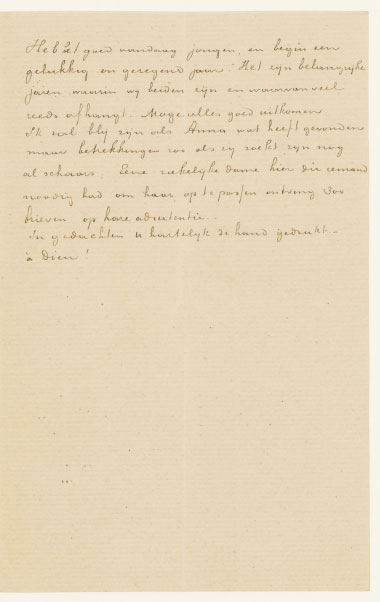 Heb 't goed vandaag jongen, en begin een
gelukkig en gezegend jaar. Het zijn belangrijke
jaren waarin wij beiden zijn en waarvan veel
reeds afhangt. Moge alles goed uitkomen
Ik zal blij zijn als Anna wat heeft gevonden
maar betrekkingen zoo als zij zoekt zijn nog
al schaars. Eene ziekelijke dame hier die iemand
noodig had om haar op te passen ontving 300
brieven op hare advertentie.
In gedachten u hartelijk de hand gedrukt –
à Dieu!